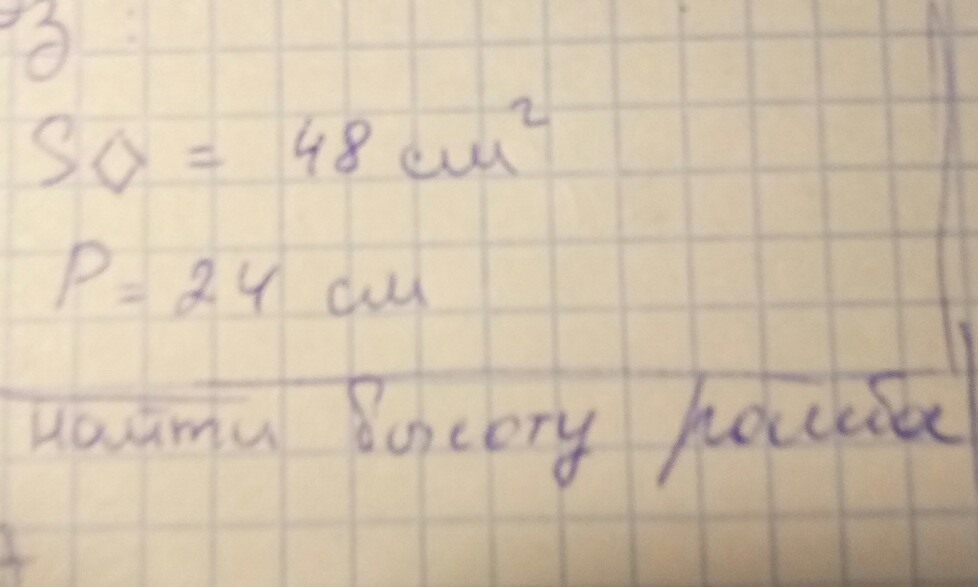 3
S◇ = 48 см²
P = 24 см
найти высоту ромба